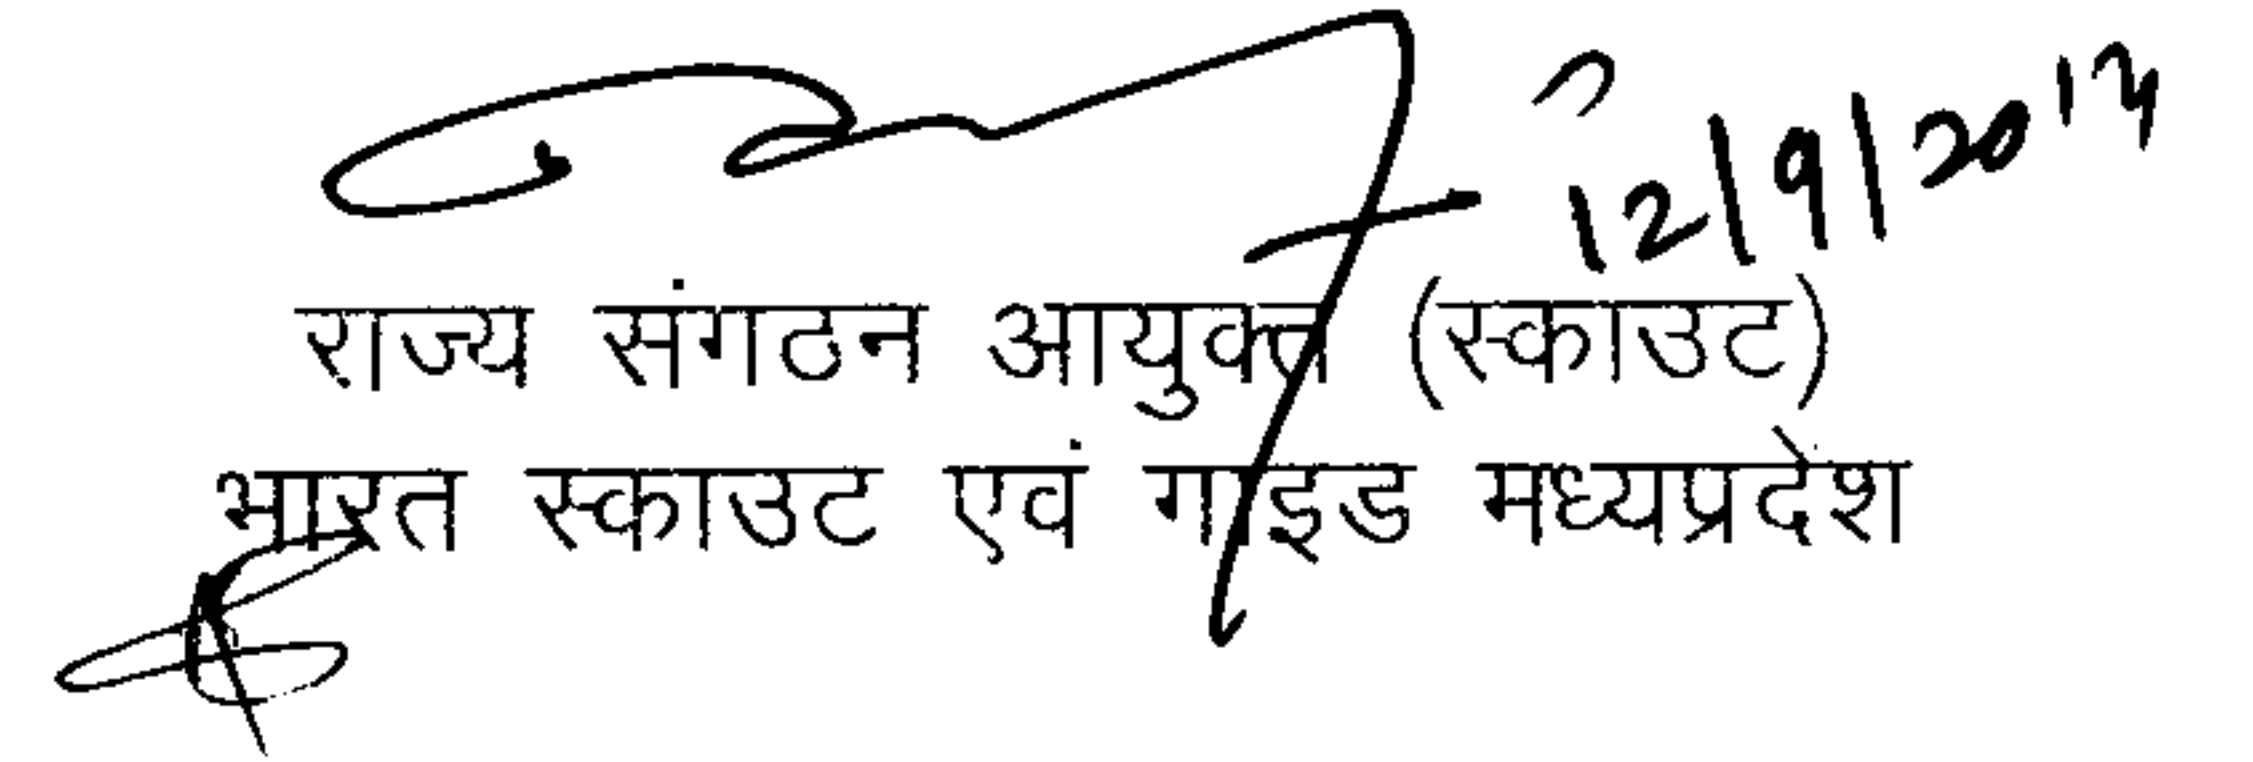 12/9/2014
राज्य संगठन आयुक्त (स्काउट)
भारत स्काउट एवं गाइड मध्यप्रदेश